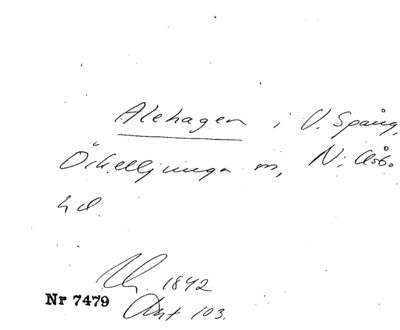 Alehagen i V. Spång,
Örkelljunga sn, N. Åsbo
hd.
Lh. 1842
Akt 103.
Nr 7479